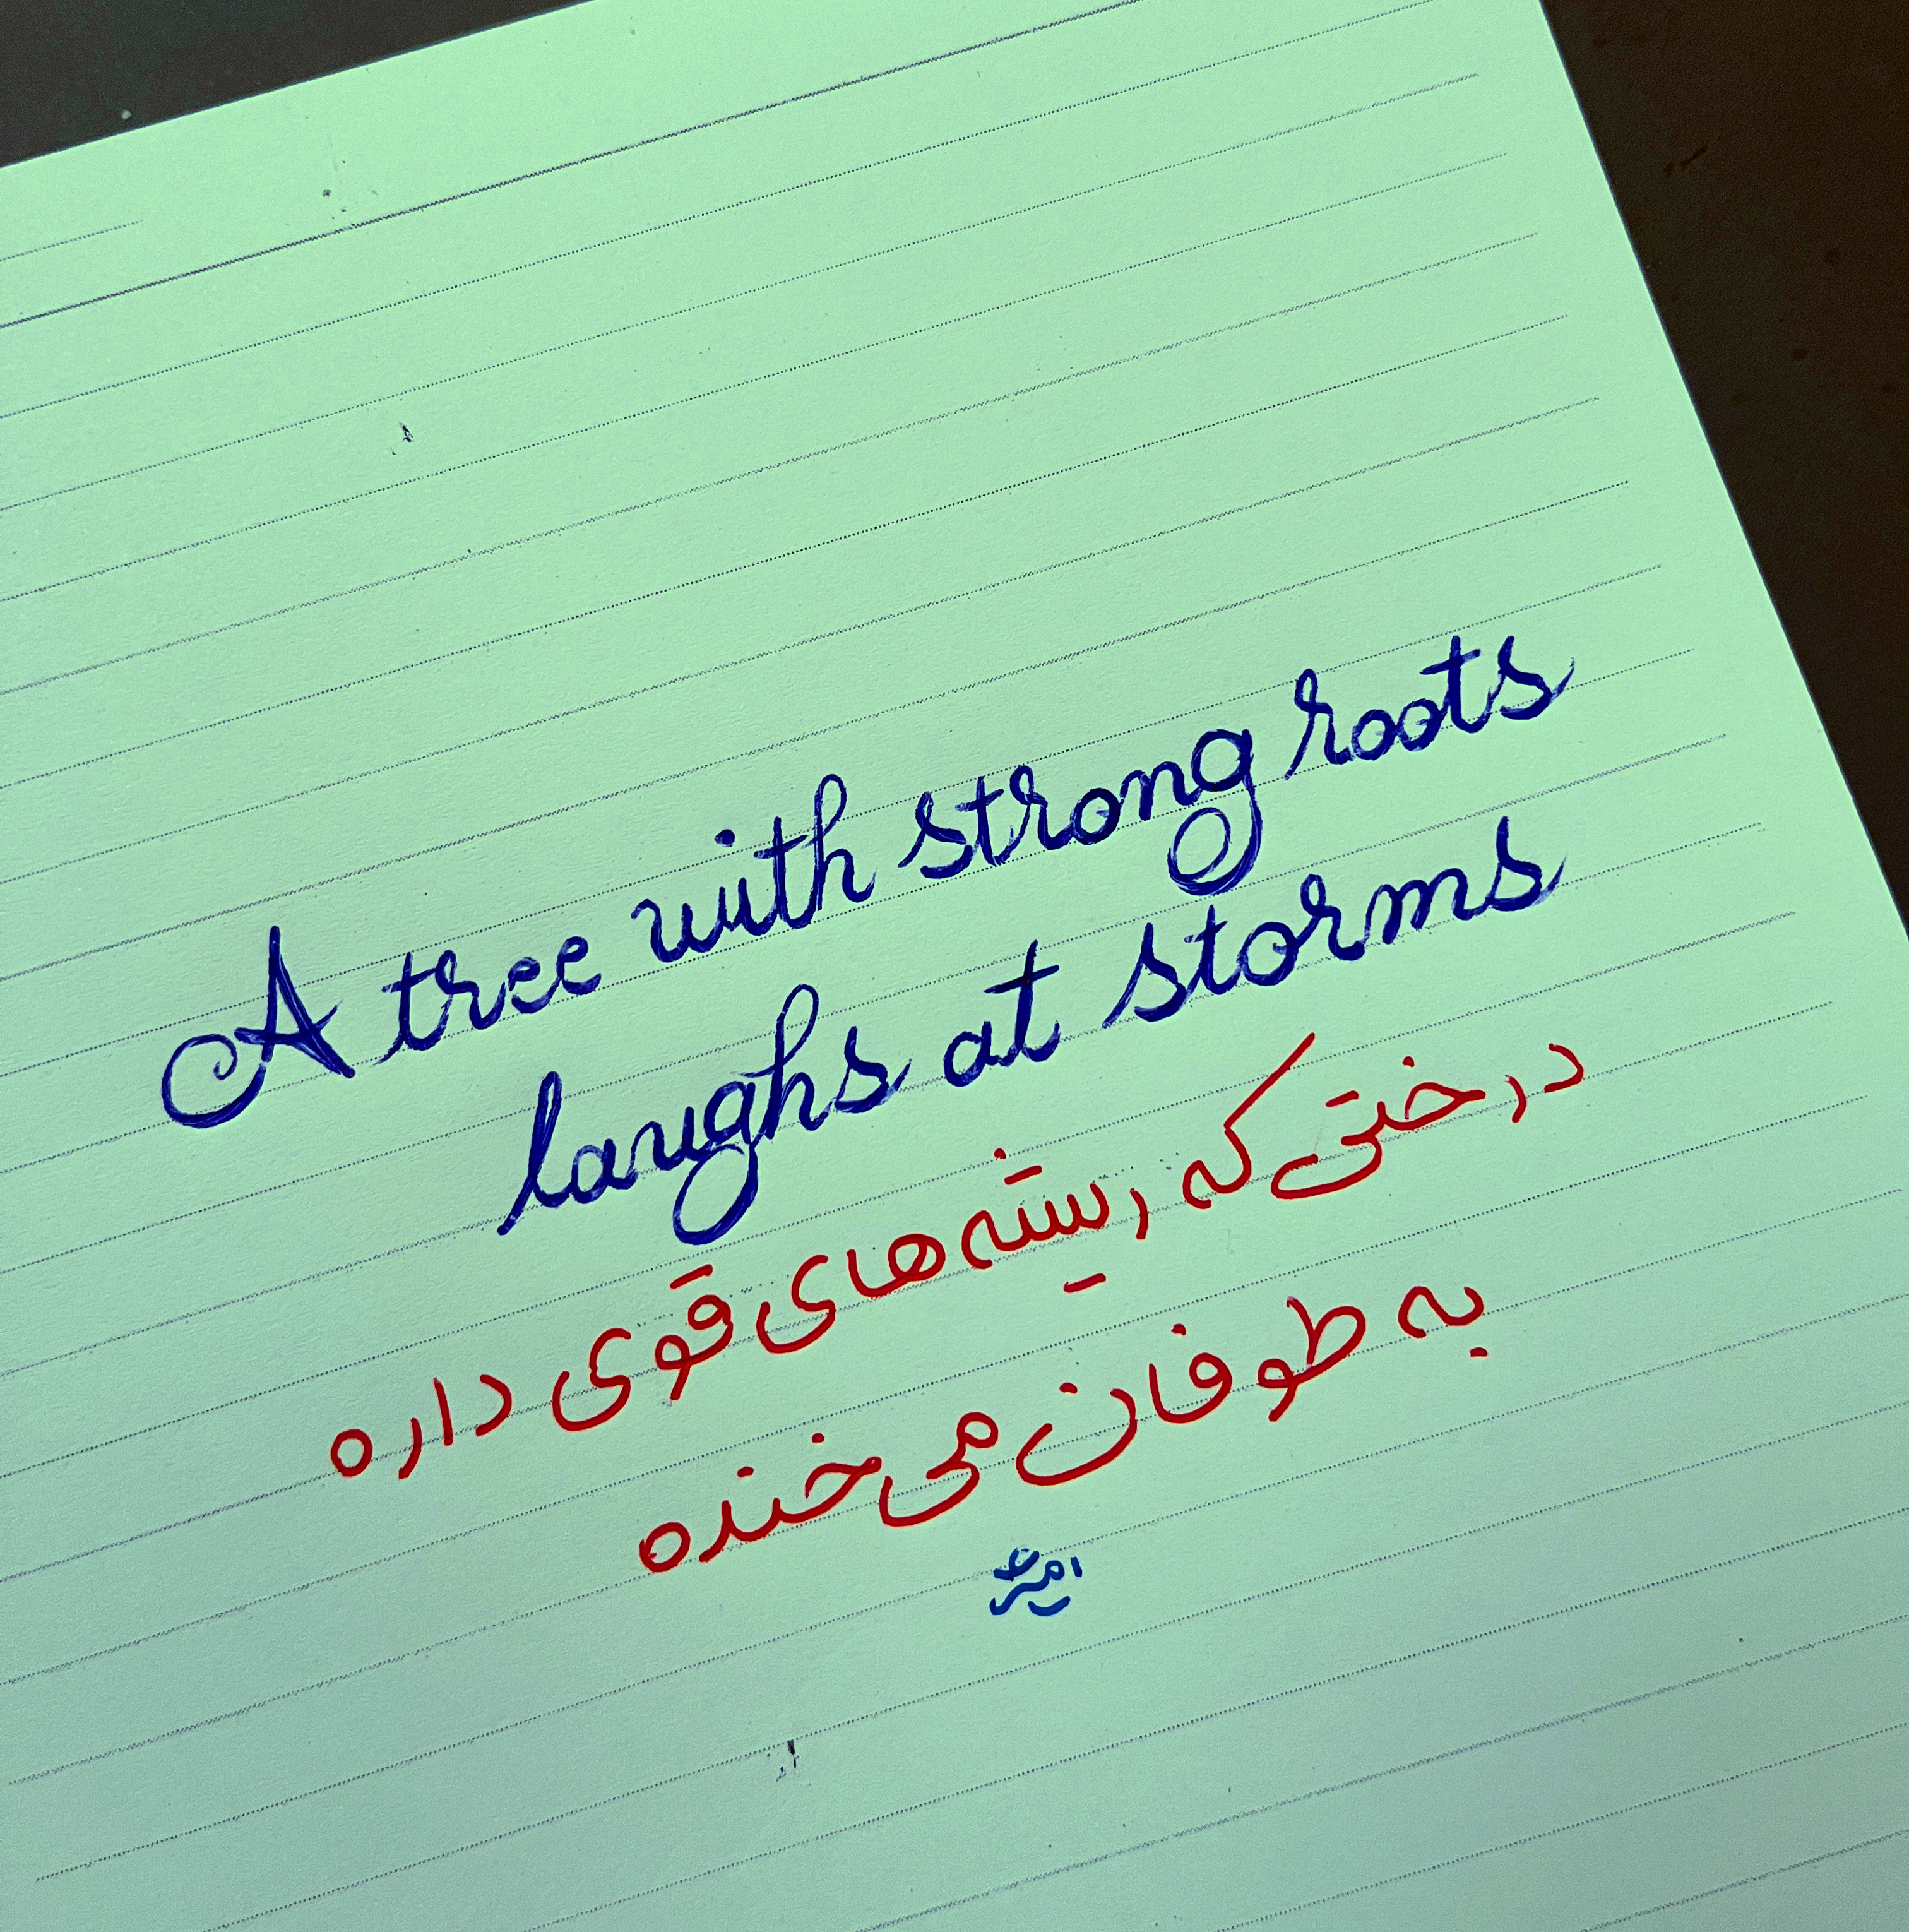 A tree with strong roots
laughs at storms
درختی که ریشه های قوی داره
به طوفان می خنده